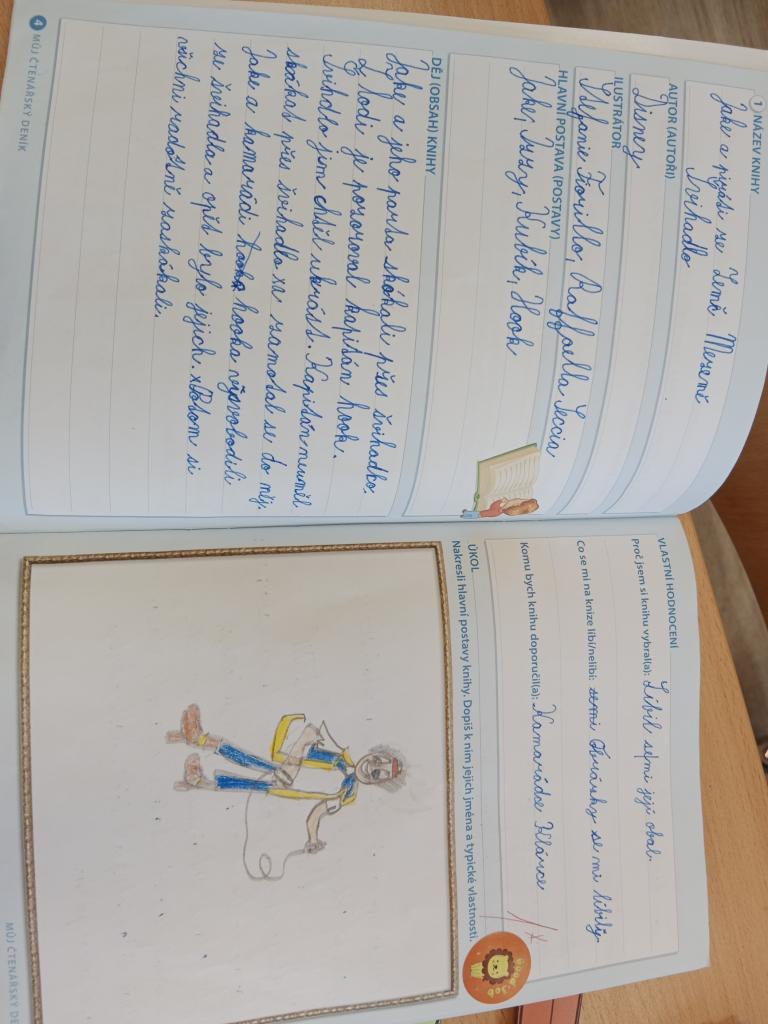 1 NÁZEV KNIHY
Jake a piráti ze Země Nezemě
Švihadlo
AUTOR (AUTOŘI)
Disney
ILUSTRÁTOR
Stefanie Fiorillo, Raffaella Seccia
HLAVNÍ POSTAVA (POSTAVY)
Jake, Izzy, Kubík, Hook
DĚJ (OBSAH) KNIHY
Jake a jeho parta skákali přes švihadko.
Z lodi je pozoroval kapitán hook.
švihadlo jim chtěl ukrást. Kapitán neuměl
skákat přes švihadlo, zamotal se do něj.
Jake a kamarádi hooka vysvobodili
ze švihadla a opět bylo jejich. Potom si
všichni radostně zaskákali.
4 MŮJ ČTENÁŘSKÝ DENÍK
VLASTNÍ HODNOCENÍ
Proč jsem si knihu vybral(a): Líbil se mi její obal.
Co se mi na knize líbí/nelíbí: Obrázky se mi líbily
Komu bych knihu doporučil(a): Kamarádce Klárce
1*
Good Job
ÚKOL
Nakresli hlavní postavy knihy. Dopiš k nim jejich jména a typické vlastnosti.
MŮJ ČTENÁŘSKÝ DE